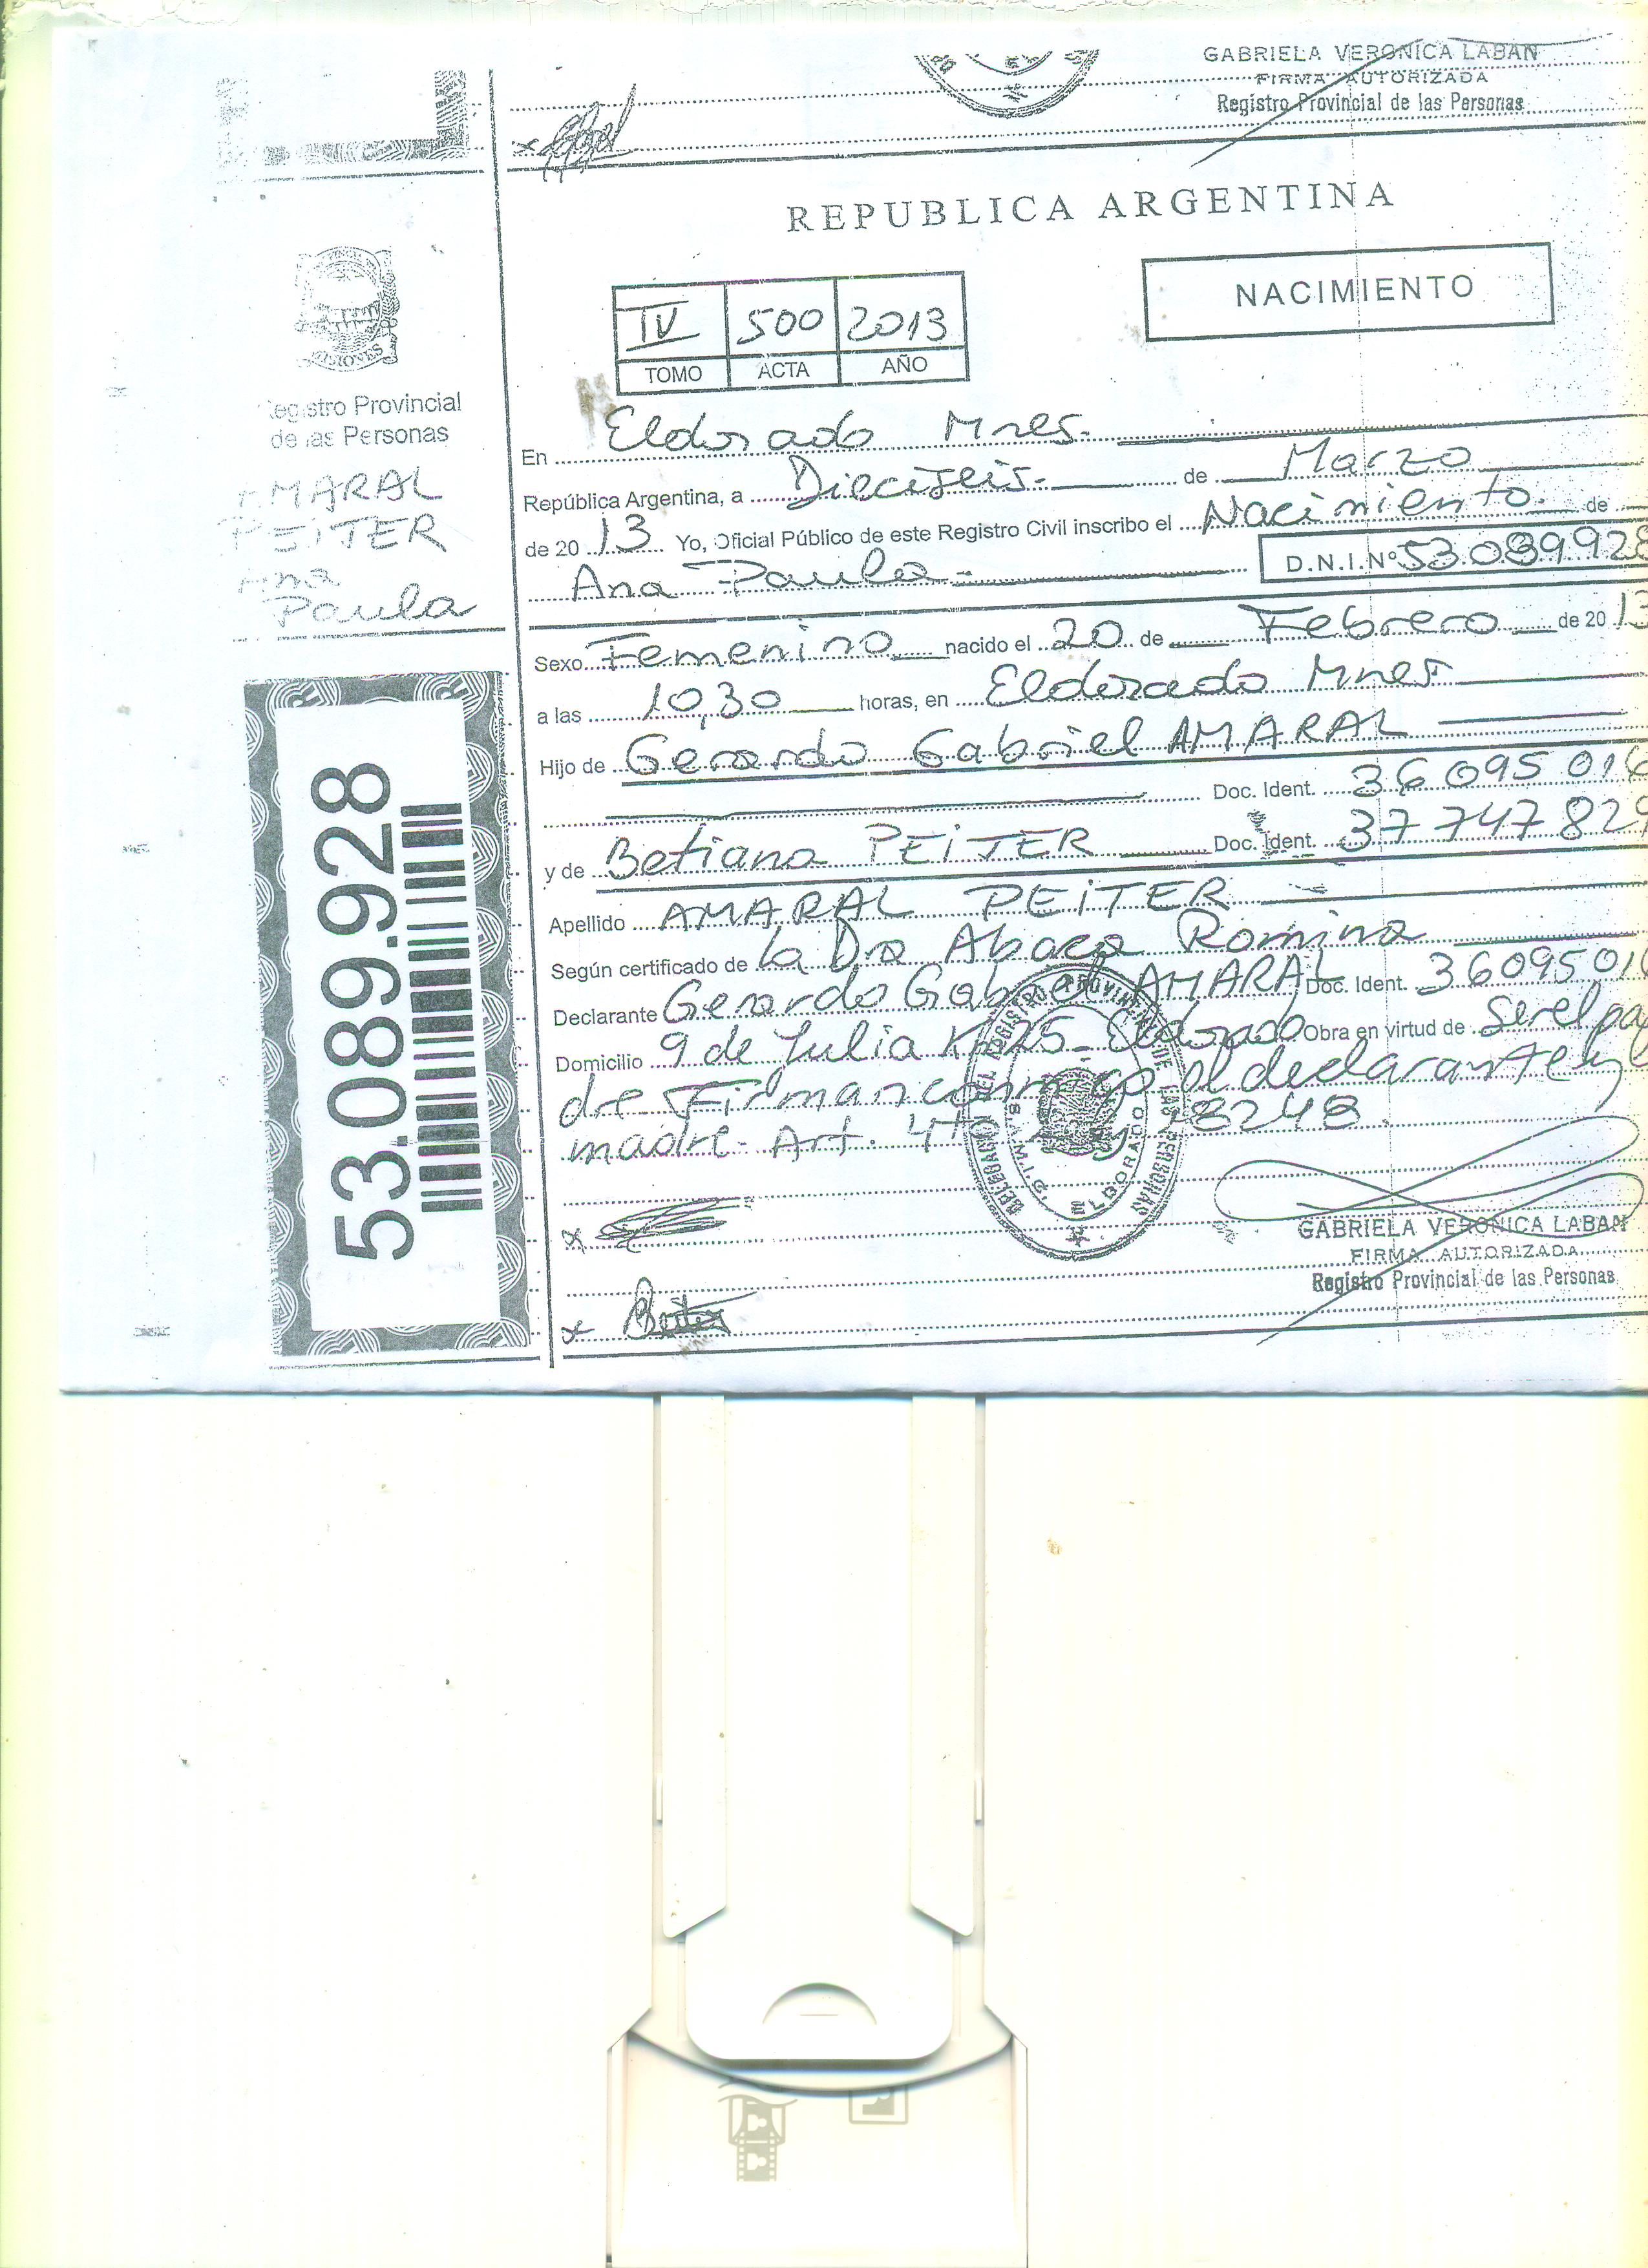 GABRIELA VERONICA LABAN
FIRMA AUTORIZADA
Registro Provincial de las Personas
REPUBLICA ARGENTINA
NACIMIENTO
IV 500 2013
TOMO ACTA AÑO
Registro Provincial
de las Personas
AMARAL
PEITER
Ana
Paula
53.089.928
En Eldorado Mnes.
República Argentina, a Dieciseis de Marzo
de 2013 Yo, Oficial Público de este Registro Civil inscribo el Nacimiento de
Ana Paula D.N.I.Nº 53.089.928
Sexo Femenino nacido el 20 de Febrero de 2013
a las 10,30 horas, en Eldorado Mnes
Hijo de Gerardo Gabriel AMARAL
Doc. Ident. 36 095 016
y de Betiana PEITER Doc. Ident. 37 747 829
Apellido AMARAL PEITER
Según certificado de la Dra Abaca Romina
Declarante Gerardo Gabriel AMARAL Doc. Ident. 36095016
Domicilio 9 de Julio Km 25 - Eldorado Obra en virtud de Ser el pa
dre Firman conmigo el declarante y
madre - Art. 4to Ley 18248
DELEGACION DEL REGISTRO PROVINCIAL DE LAS PERSONAS
ELDORADO
GABRIELA VERONICA LABAN
FIRMA AUTORIZADA
Registro Provincial de las Personas
x Peiter